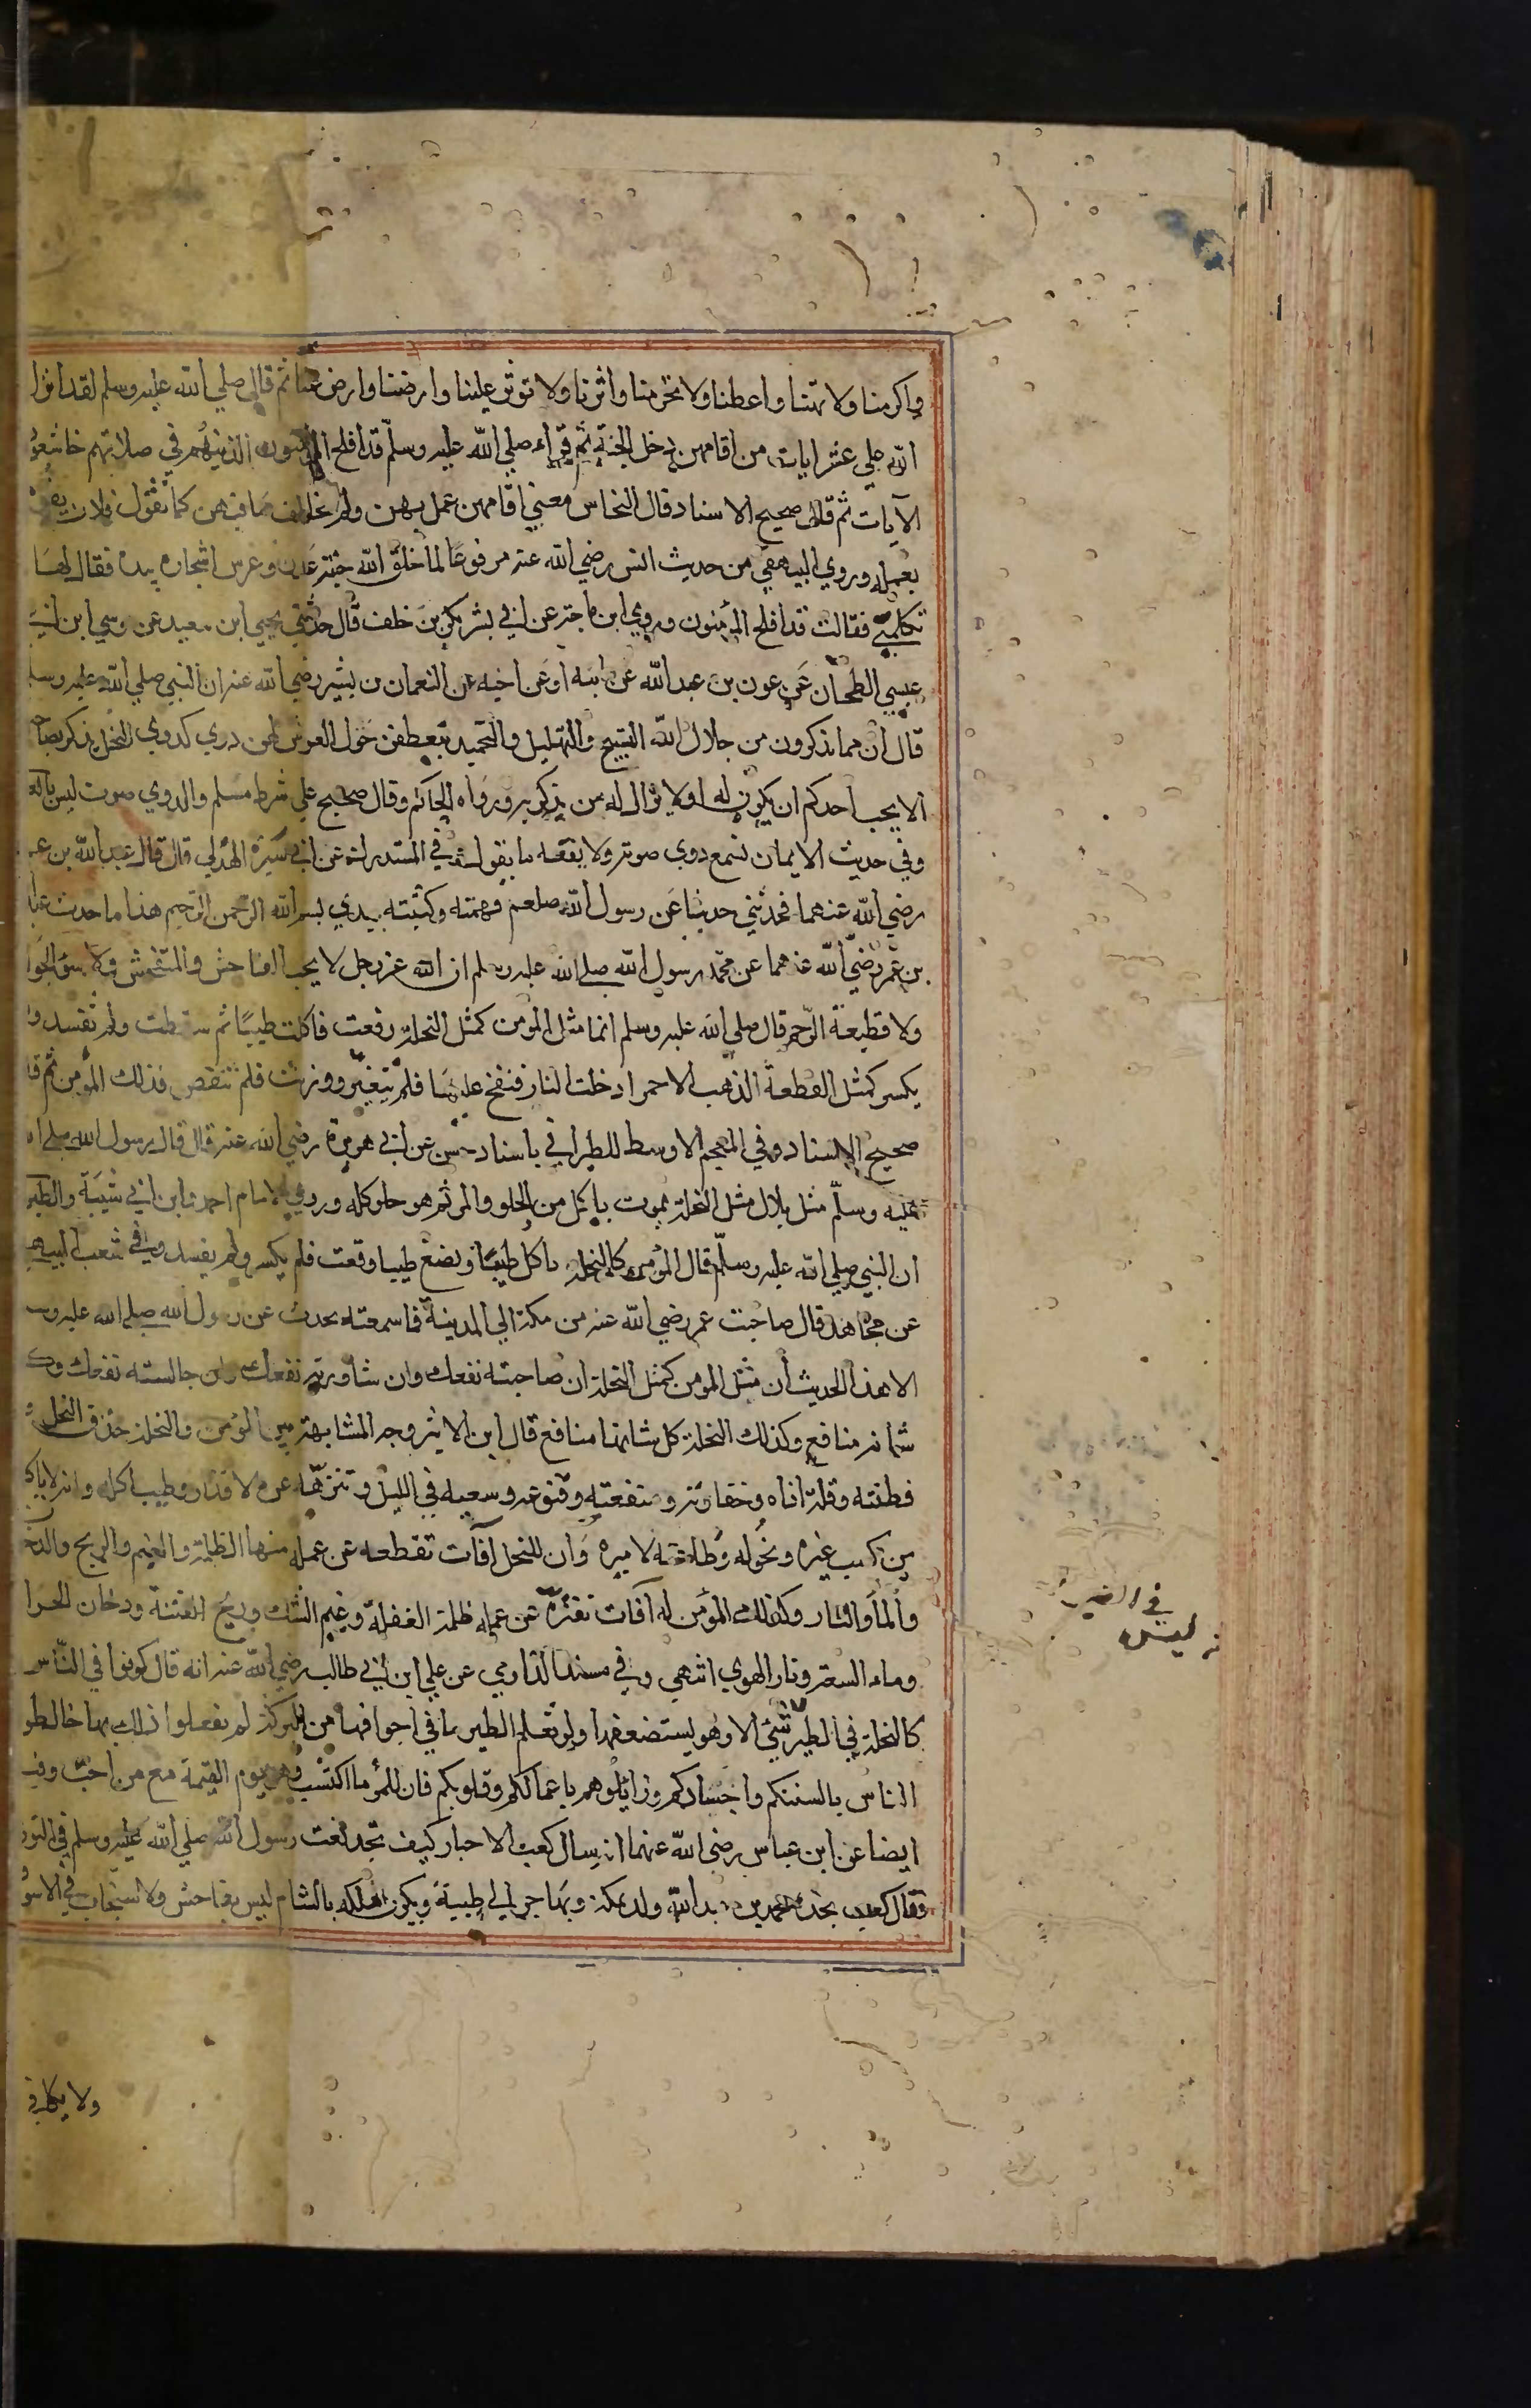 واكرمنا ولا تهنا واعطنا ولا تحرمنا واثرنا ولا توثر علينا وارضنا وارض عنا ثم قال صلي الله عليه وسلم لقد انزل
الله علي عشر ايات من اقامهن دخل الجنة ثم قراء صلي الله عليه وسلم قد افلح المؤمنون الذين هم في صلاتهم خاشعون
الآيات ثم قال صحيح الاسناد قال النحاس معني اقامهن عمل بهن ولم يخالف ما فيهن كما تقول فلان يقوم
بعمله وروي البيهقي من حديث انس رضي الله عنه مرفوعا لما خلق الله جنة عدن وغرس اشجاره بيده فقال لها
تكلمي فقالت قد افلح المؤمنون وروي ابن ماجة عن ابي بشر بكر بن خلف قال حدثني يحيي ابن سعيد عن موسي ابن ابي
عيسي الطحان عن عون بن عبد الله عن ابيه او عن اخيه عن النعمان بن بشير رضي الله عنه ان النبي صلي الله عليه وسلم
قال ان مما تذكرون من جلال الله التسبيح والتهليل والتحميد يتعطفن حول العرش لهن دوي كدوي النحل يذكر بصاحبه
الا يحب احدكم ان يكون له او لا يزال له من يذكر به ورواه الحاكم وقال صحيح علي شرط مسلم والدوي صوت ليس بالعا
وفي حديث الايمان نسمع دوي صوته ولا يفقه ما يقول وفي المستدرك عن ابي سبرة الهذلي قال قال عبد الله بن عمر
رضي الله عنهما فحدثني حديثا عن رسول الله صلعم فهمته وكتبته بيدي بسم الله الرحمن الرحيم هذا ما حدث عبد
بن عمر رضي الله عنهما عن محمد رسول الله صلي الله عليه وسلم ان الله عز وجل لا يحب الفاحش والمتفحش ولا سؤ الجوا
ولا قطيعة الرحم قال صلي الله عليه وسلم انما مثل المؤمن كمثل النحلة رفعت فاكلت طيبا ثم سقطت ولم تفسد ولم
يكسر كمثل القطعة الذهب الاحمر ادخلت النار فنفخ عليها فلم يتغير ووزنت فلم تنقص فذلك المؤمن ثم قا
صحيح الاسناد وفي المعجم الاوسط للطبراني باسناد حسن عن ابي هريرة رضي الله عنه قال قال رسول الله صلي ا
عليه وسلم مثل بلال مثل النحلة يموت ياكل من الحلو والمر ثم هو حلو كله وروي الامام احمد وابن ابي شيبة والطبر
ان النبي صلي الله عليه وسلم قال المؤمن كالنحلة تاكل طيبا وتضع طيبا وقعت فلم يكسر ولم يفسد وفي شعب البيهقي
عن مجاهد قال صاحبت عمر رضي الله عنه من مكة الي المدينة فما سمعته يحدث عن رسول الله صلي الله عليه وس
الا هذا الحديث ان مثل المؤمن كمثل النحلة ان صاحبته نفعك وان شاورته نفعك وان جالسته نفعك وك
شانه منافع وكذلك النحلة كل شانها منافع قال ابن الاثير وجه المشابهة بين المؤمن والنحلة حذق النحل و
فطنته وقلة اذاه وحقارته ومنفعته وقنوعه وسعيه في الليل وتنزهه عن الاقذار وطيب اكله وانه لا ياك
من كسب غيره ونحوله وطاعته لاميره وان للنحل آفات تقطعه عن عمله منها الظلمة والغيم والريح والدخ
والماء والنار وكذلك المؤمن له آفات تفتره عن عمله ظلمة الغفلة وغيم الشك وريح الفتنة ودخان الحرا
وماء السعة ونار الهوي انتهي وفي مسند الدارمي عن علي ابن ابي طالب رضي الله عنه انه قال كونوا في الناس
كالنحلة في الطير شئ الا وهو يستضعفها ولو تعلم الطير ما في اجوافها من البركة لم يفعلوا ذلك بها خالطو
الناس بالسنتكم واجسادكم وزايلوهم باعمالكم وقلوبكم فان للمرء ما اكتسب وهو يوم القيمة مع من احب وفيه
ايضا عن ابن عباس رضي الله عنهما انه سال كعب الاحبار كيف تجد نعت رسول الله صلي الله عليه وسلم في التور
فقال كعب نجده محمد بن عبد الله ولد بمكة ويهاجر الي طيبة ويكون ملكه بالشام ليس بفاحش ولا سخاب في الاسو
ولا يكافي
في الطير
ليس